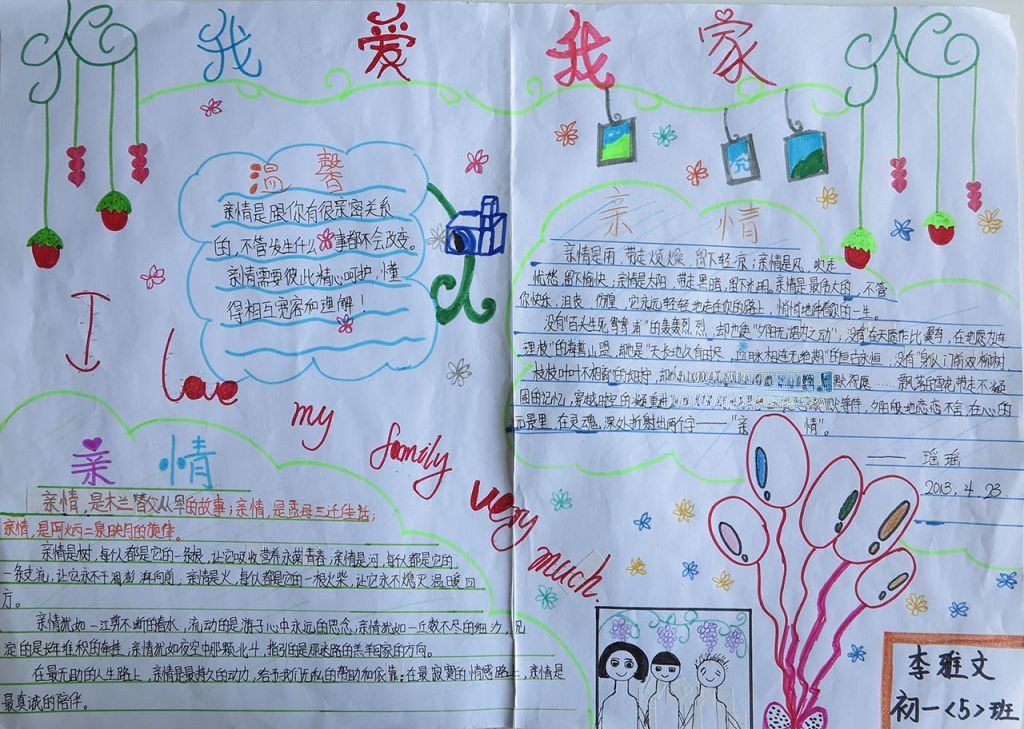 我爱我家
温馨
亲情是跟你有很亲密关系
的,不管发生什么事都不会改变。
亲情需要彼此精心呵护,懂
得相互宽容和理解!
I love my family very much.
亲情
亲情是雨,带走烦燥,留下轻凉;亲情是风,吹走
忧愁,留下愉快;亲情是太阳,带走黑暗,留下光明。亲情是最伟大的,不管
你快乐,沮丧,彷徨,它永远轻轻地走在你的路上,悄悄地伴着你的一生。
没有“百头生死鸳鸯浦”的轰轰烈烈,却也
没有“在天愿作比翼鸟,在地愿为连
理枝”的海誓山盟,却是“天长地久有时尽,
枝枝叶叶不相离”的
默祝愿……
固的记忆,穿越时空的凝重
等待,
在心的
远景里,在灵魂深处折射出两个字——“亲情”。
——瑶瑶
2013.4.23
亲情
亲情,是木兰替父从军的故事;亲情,是孟母三迁佳话;
亲情,是阿炳二泉映月的旋律。
亲情是树,每个人都是它的一条根,让它吸收营养永葆青春;亲情是河,每个人都是它的
一条支流,让它永不干涸澎湃向前,亲情是火,每个人都是它的一根火柴,让它永不熄灭温暖四
方。
亲情犹如一江剪不断的春水,流动的是游子心中永远的思念,亲情犹如一片数不尽的细沙,沉
淀的是长年堆积的牵挂,亲情犹如夜空中那颗北斗,指引的是
家的方向。
在最无助的人生路上,亲情是最持久的动力,给予我们无私的帮助和依靠;在最寂寞的情感路上,亲情是
最真诚的陪伴。
李雅文
初一<5>班